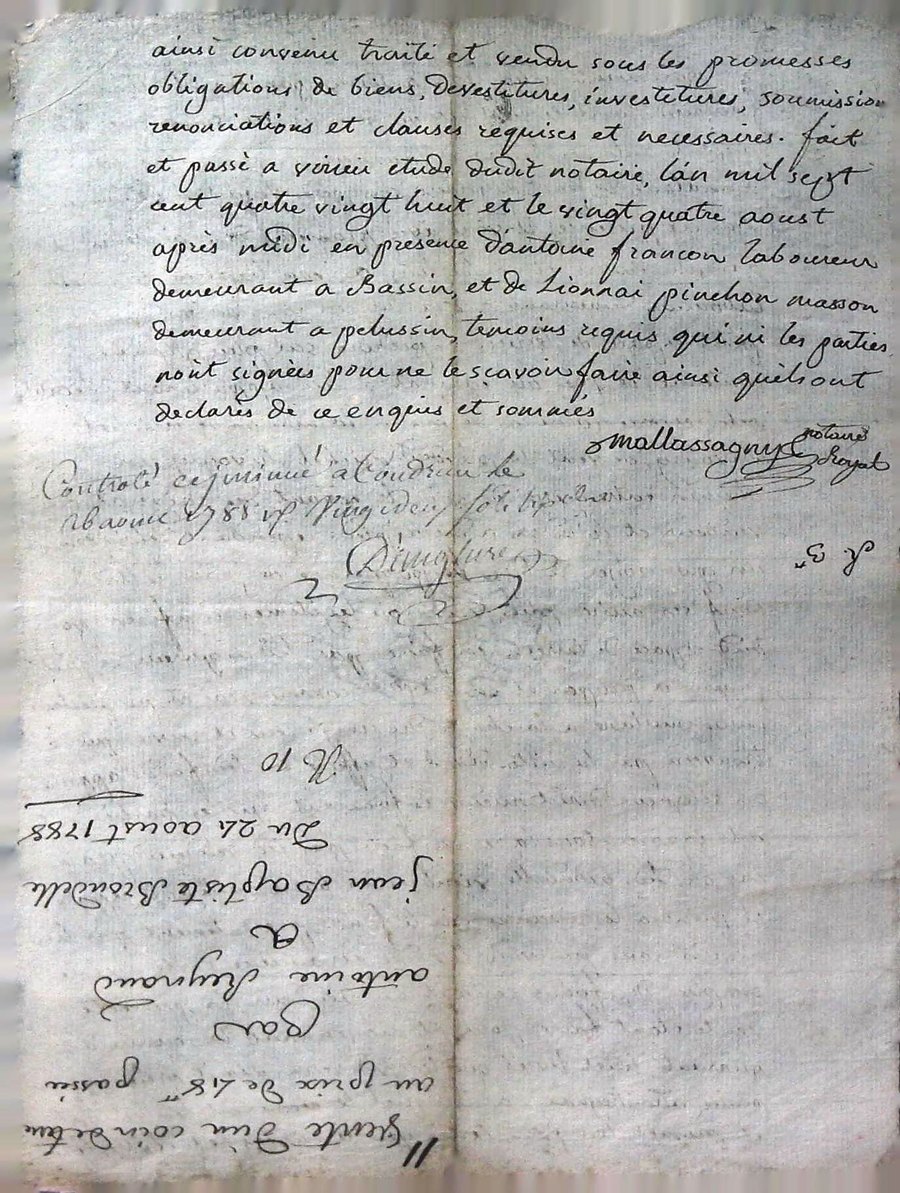 ainsi convenu traité et vendu sous les promesses
obligations de biens, devestitures, investitures, soumission
renonciations et clauses requises et necessaires. fait
et passé a virieu etude dudit notaire, l'an mil sept
cent quatre vingt huit et le vingt quatre aoust
après midi en présence d'antoine francon laboureur
demeurant a Bassin, et de Lionnai pinchon masson
demeurant a pelussin, temoins requis qui ni les parties
n'ont signées pour ne le scavoir faire ainsi quels ont
declarés de ce enquis et sommés
mallassagny notaire
Royal
Controlé ce jminué a Condrieu le
aoust 1788
R 3"
11
Vente d'un coin de
au prix de 48" passée
par
antoine Reynaud
a
jean Baptiste Brondelle
Du 24 aoust 1788
R 10